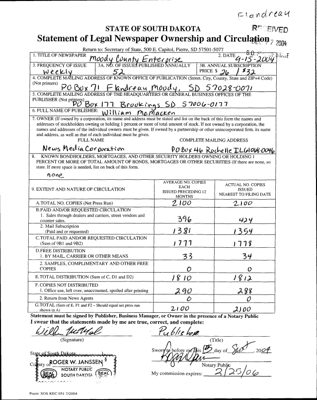 Flandreau
STATE OF SOUTH DAKOTA
Statement of Legal Newspaper Ownership and Circulation
Return to: Secretary of State, 500 E. Capitol, Pierre, SD 57501-5077
1. TITLE OF NEWSPAPER Moody County Enterprise 2. DATE 9-15-2004
3. FREQUENCY OF ISSUE weekly 3A. NO. OF ISSUES PUBLISHED ANNUALLY 52 3B. ANNUAL SUBSCRIPTION PRICE $ 26 / $32
4. COMPLETE MAILING ADDRESS OF KNOWN OFFICE OF PUBLICATION (Street, City, County, State and ZIP+4 Code) (Not printers)
PO Box 71 Flandreau Moody, SD 57028-0071
5. COMPLETE MAILING ADDRESS OF THE HEADQUARTERS OF GENERAL BUSINESS OFFICES OF THE PUBLISHER (Not printer)
PO Box 177 Brookings SD 57006-0177
6. FULL NAME OF PUBLISHER: William McMacken
7. OWNER (If owned by a corporation, its name and address must be stated and list on the back of this form the names and
addresses of stockholders owning or holding 1 percent or more of total amount of stock. If not owned by a corporation, the
names and addresses of the individual owners must be given. If owned by a partnership or other unincorporated firm, its name
and address, as well as that of each individual must be given.
FULL NAME COMPLETE MAILING ADDRESS
News Media Corporation PO Box 46 Rochelle IL
8. KNOWN BONDHOLDERS, MORTGAGES, AND OTHER SECURITY HOLDERS OWNING OR HOLDING 1
PERCENT OR MORE OF TOTAL AMOUNT OF BONDS, MORTGAGES OR OTHER SECURITIES (If there are none, so
state. If more space is needed, list on back of this form.
none
9. EXTENT AND NATURE OF CIRCULATION
AVERAGE NO. COPIES EACH ISSUED PRECEDING 12 MONTHS
ACTUAL NO. COPIES ISSUED NEAREST TO FILING DATE
A. TOTAL NO. COPIES (Net Press Run) 2100 2100
B. PAID AND/OR REQUESTED CIRCULATION
1. Sales through dealers and carriers, street vendors and counter sales. 396 424
2. Mail Subscription (Paid and or requested) 1381 1354
C. TOTAL PAID AND/OR REQUESTED CIRCULATION (Sum of 9B1 and 9B2) 1777 1778
D. FREE DISTRIBUTION
1. BY MAIL, CARRIER OR OTHER MEANS 33 34
2. SAMPLES, COMPLIMENTARY AND OTHER FREE COPIES 0 0
E. TOTAL DISTRIBUTION (Sum of C, D1 and D2) 1810 1812
F. COPIES NOT DISTRIBUTED
1. Office use, left over, unaccounted, spoiled after printing 290 288
2. Return from News Agents 0 0
G. TOTAL (Sum of E, F1 and F2 - Should equal net press run shown in A) 2100 2100
Statement must be signed by Publisher, Business Manager, or Owner in the presence of a Notary Public
I swear that the statements made by me are true, correct, and complete:
Publisher
(Signature) (Title)
State of South Dakota
ROGER W. JANSSEN
NOTARY PUBLIC
SOUTH DAKOTA
SEAL SEAL
Sworn to before me this 15 day of Sept 2004
Notary Public
My commission expires: 2/25/06